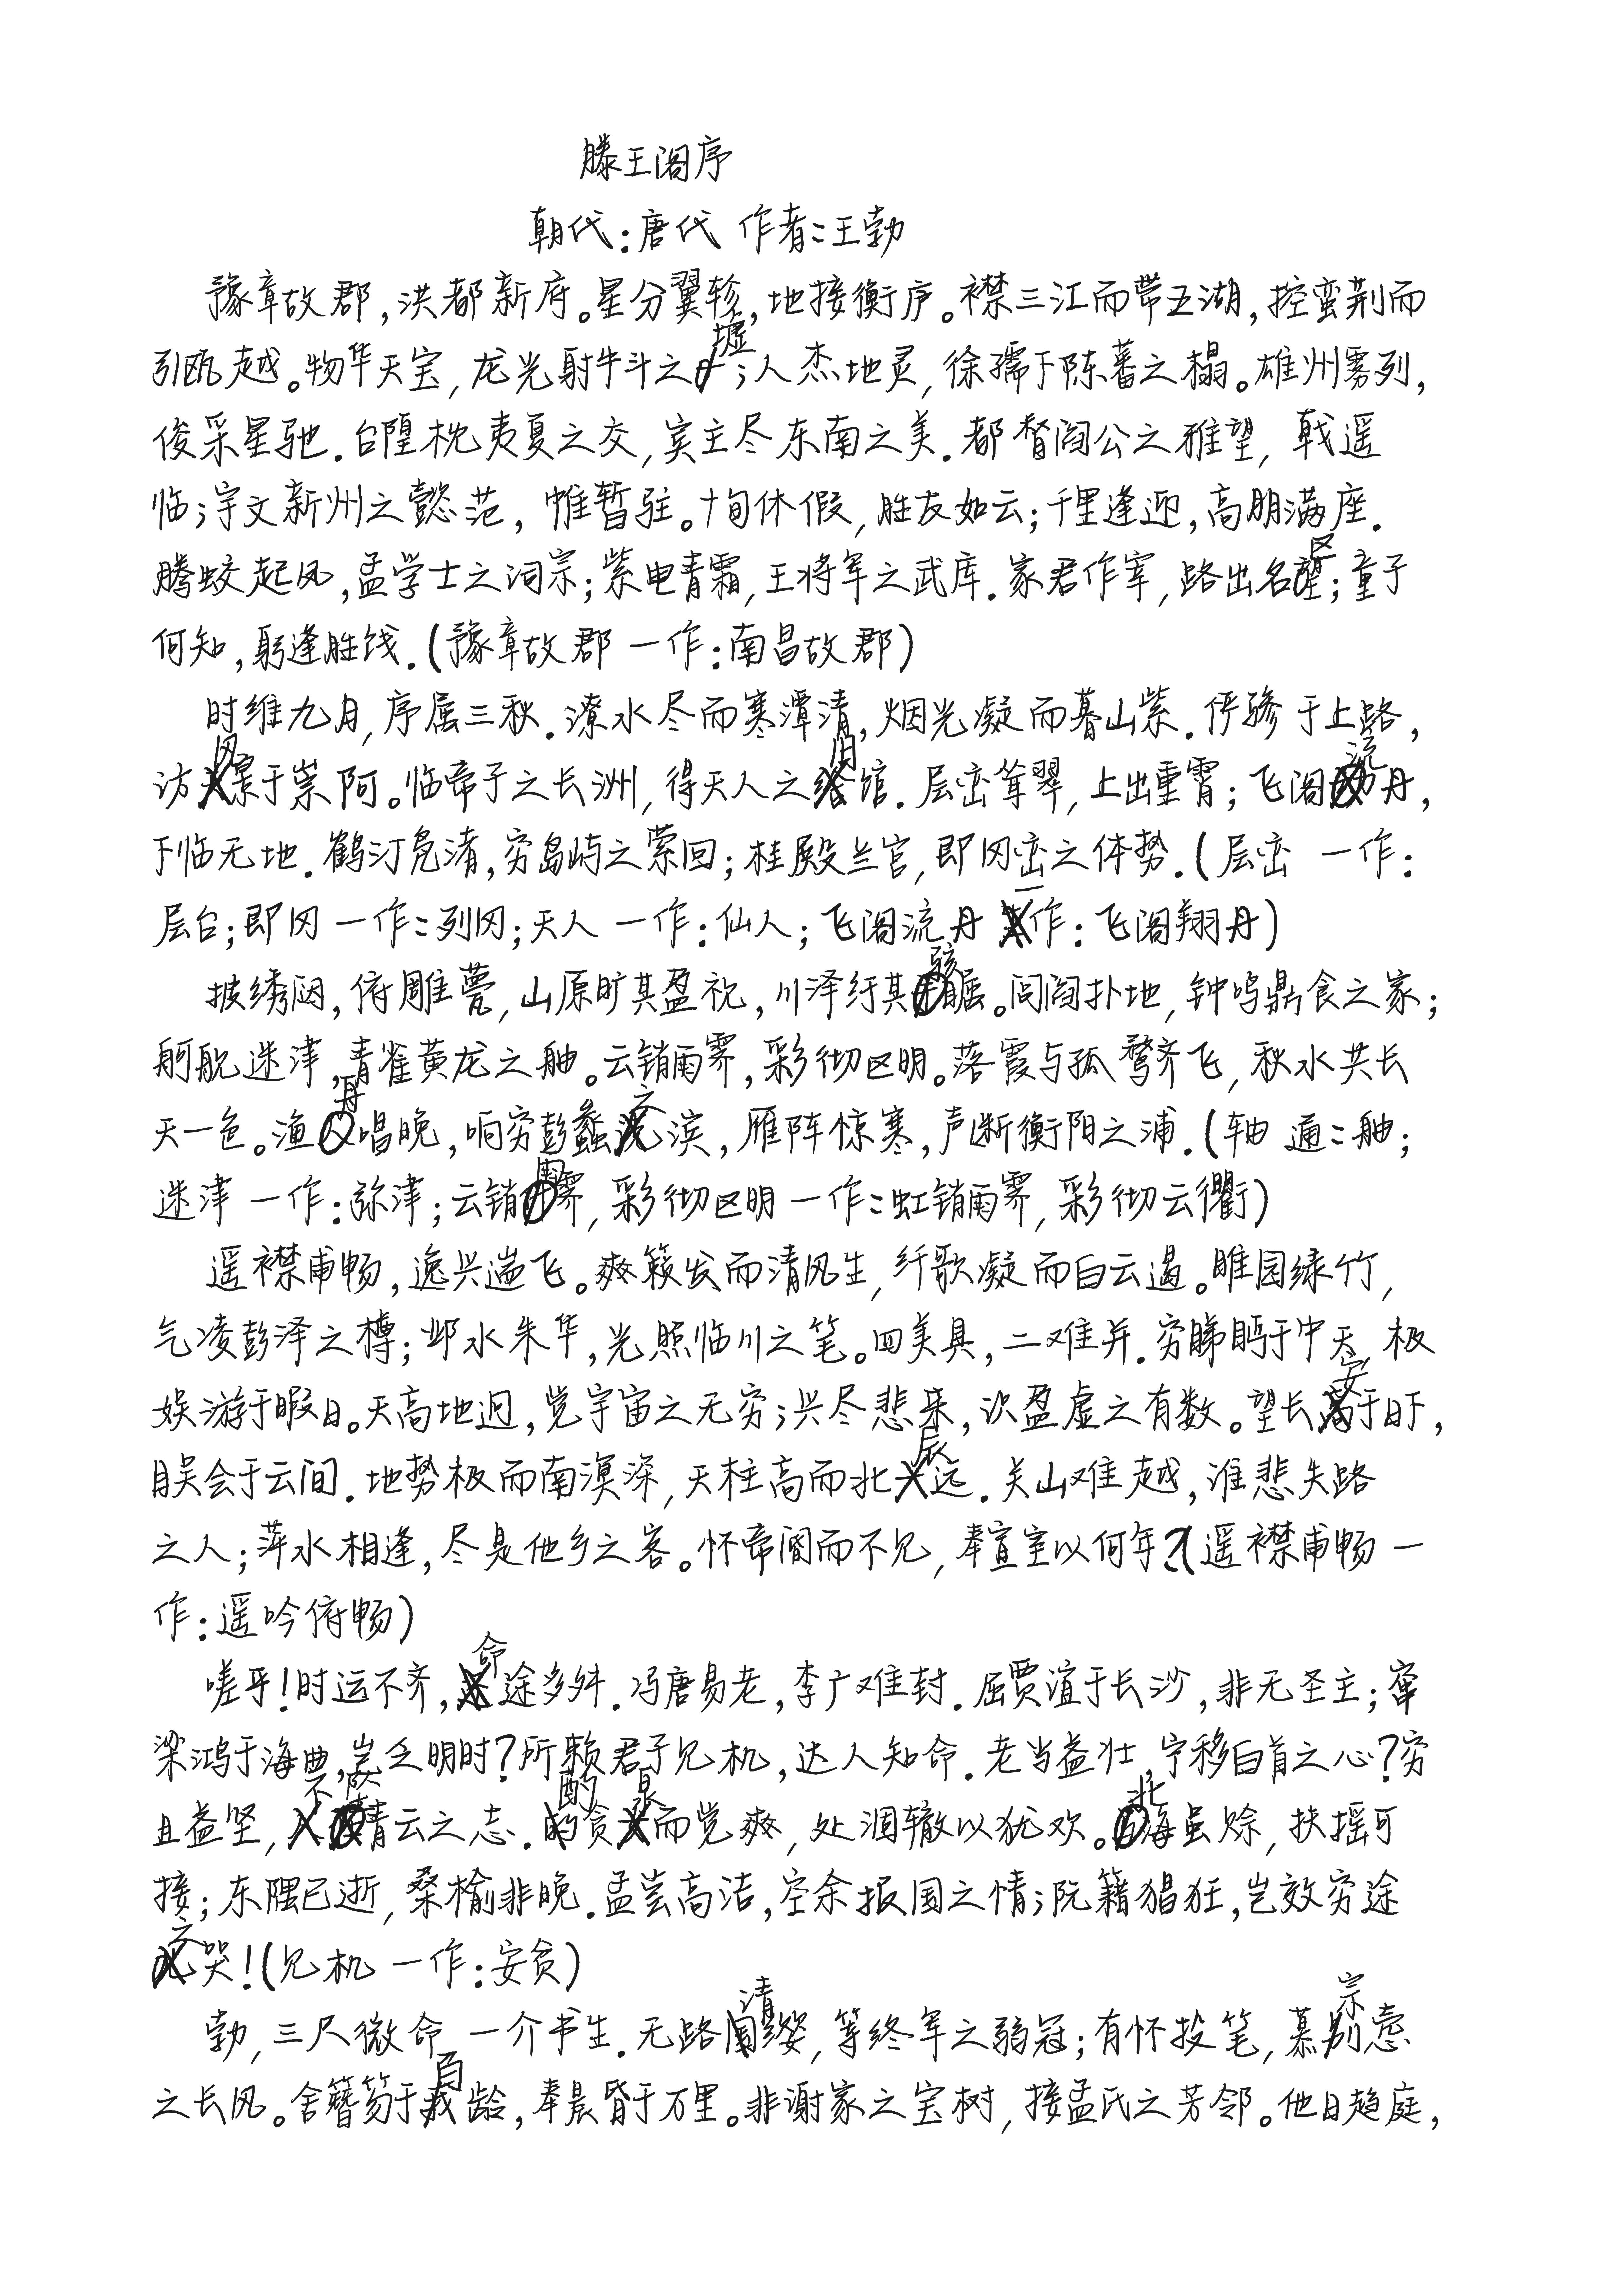 滕王阁序
朝代:唐代 作者:王勃
豫章故郡,洪都新府。星分翼轸,地接衡庐。襟三江而带五湖,控蛮荆而
引瓯越。物华天宝,龙光射牛斗之墟;人杰地灵,徐孺下陈蕃之榻。雄州雾列,
俊采星驰.台隍枕夷夏之交,宾主尽东南之美.都督阎公之雅望,戟遥
临;宇文新州之懿范,帷暂驻。十旬休假,胜友如云;千里逢迎,高朋满座.
腾蛟起凤,孟学士之词宗;紫电青霜,王将军之武库.家君作宰,路出名区;童子
何知,躬逢胜饯.(豫章故郡 一作:南昌故郡)
时维九月,序属三秋.潦水尽而寒潭清,烟光凝而暮山紫.俨骖于上路,
访风景于崇阿。临帝子之长洲,得天人之旧馆.层峦耸翠,上出重霄;飞阁流丹,
下临无地.鹤汀凫渚,穷岛屿之萦回;桂殿兰宫,即冈峦之体势.(层峦 一作:
层台;即冈 一作:列冈;天人 一作:仙人;飞阁流丹 一作:飞阁翔丹)
披绣闼,俯雕甍,山原旷其盈视,川泽纡其骇瞩。闾阎扑地,钟鸣鼎食之家;
舸舰迷津,青雀黄龙之舳。云销雨霁,彩彻区明。落霞与孤鹜齐飞,秋水共长
天一色。渔舟唱晚,响穷彭蠡之滨,雁阵惊寒,声断衡阳之浦.(轴 通:舳;
迷津 一作:弥津;云销雨霁,彩彻区明 一作:虹销雨霁,彩彻云衢)
遥襟甫畅,逸兴遄飞。爽籁发而清风生,纤歌凝而白云遏。睢园绿竹,
气凌彭泽之樽;邺水朱华,光照临川之笔。四美具,二难并.穷睇眄于中天,极
娱游于暇日。天高地迥,觉宇宙之无穷;兴尽悲来,识盈虚之有数。望长安于日下,
目吴会于云间.地势极而南溟深,天柱高而北辰远.关山难越,谁悲失路
之人;萍水相逢,尽是他乡之客。怀帝阍而不见,奉宣室以何年?(遥襟甫畅 一
作:遥吟俯畅)
嗟乎!时运不齐,命途多舛.冯唐易老,李广难封.屈贾谊于长沙,非无圣主;窜
梁鸿于海曲,岂乏明时?所赖君子见机,达人知命.老当益壮,宁移白首之心?穷
且益坚,不坠青云之志.酌贪泉而觉爽,处涸辙以犹欢。北海虽赊,扶摇可
接;东隅已逝,桑榆非晚.孟尝高洁,空余报国之情;阮籍猖狂,岂效穷途
之哭!(见机 一作:安贫)
勃,三尺微命,一介书生.无路请缨,等终军之弱冠;有怀投笔,慕宗悫
之长风。舍簪笏于百龄,奉晨昏于万里。非谢家之宝树,接孟氏之芳邻。他日趋庭,